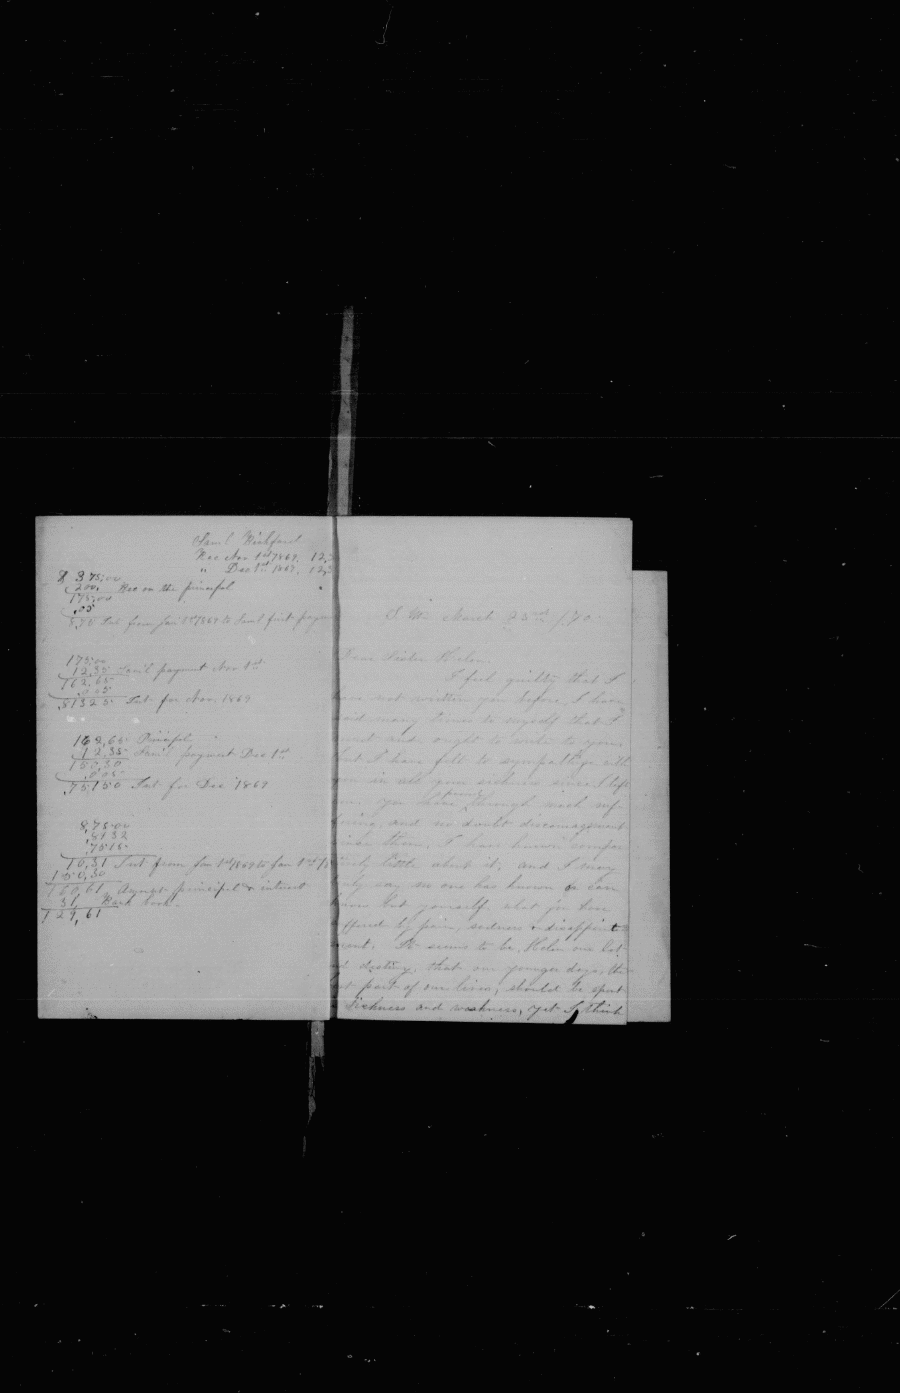 Sam'l
Rec Nov 1st 1869. 12,3
" Dec 1st 1869. 12,3
$ 375,00
200, Rec on the principal
175,00
,05
8,75 Int from Jan 1st 1869 to Sam'l first paym
175,00
12,35 Sam'l payment Nov 1st
162,65
,005
,81325 Int for Nov. 1869
162,65 Principal
12,35 Sam'l payment Dec 1st
150,30
,005
,75150 Int for Dec 1869
8,75,00
,8132
,7515
10,31 Int from Jan 1st 1869 to Jan 1st
150,30
160,61 Amount principal & interest
31, Book
129,61
March 22nd /70.
Dear Sister Helen.
I feel guilty that I
have not written you before, I have
said many times to myself that I
must and ought to write to you,
but I have felt to sympathize with
you in all your sickness since I left
you have through much suf-
fering, and no doubt discouragement
I have known compar-
atively little about it, and I may
only say no one has known or can
know but yourself, what you have
suffered by pain, sadness & disappoint
ment. It seems to be, Helen our lot
and destiny, that our younger days, the
best part of our lives, should be spent
in sickness and weakness, yet I think